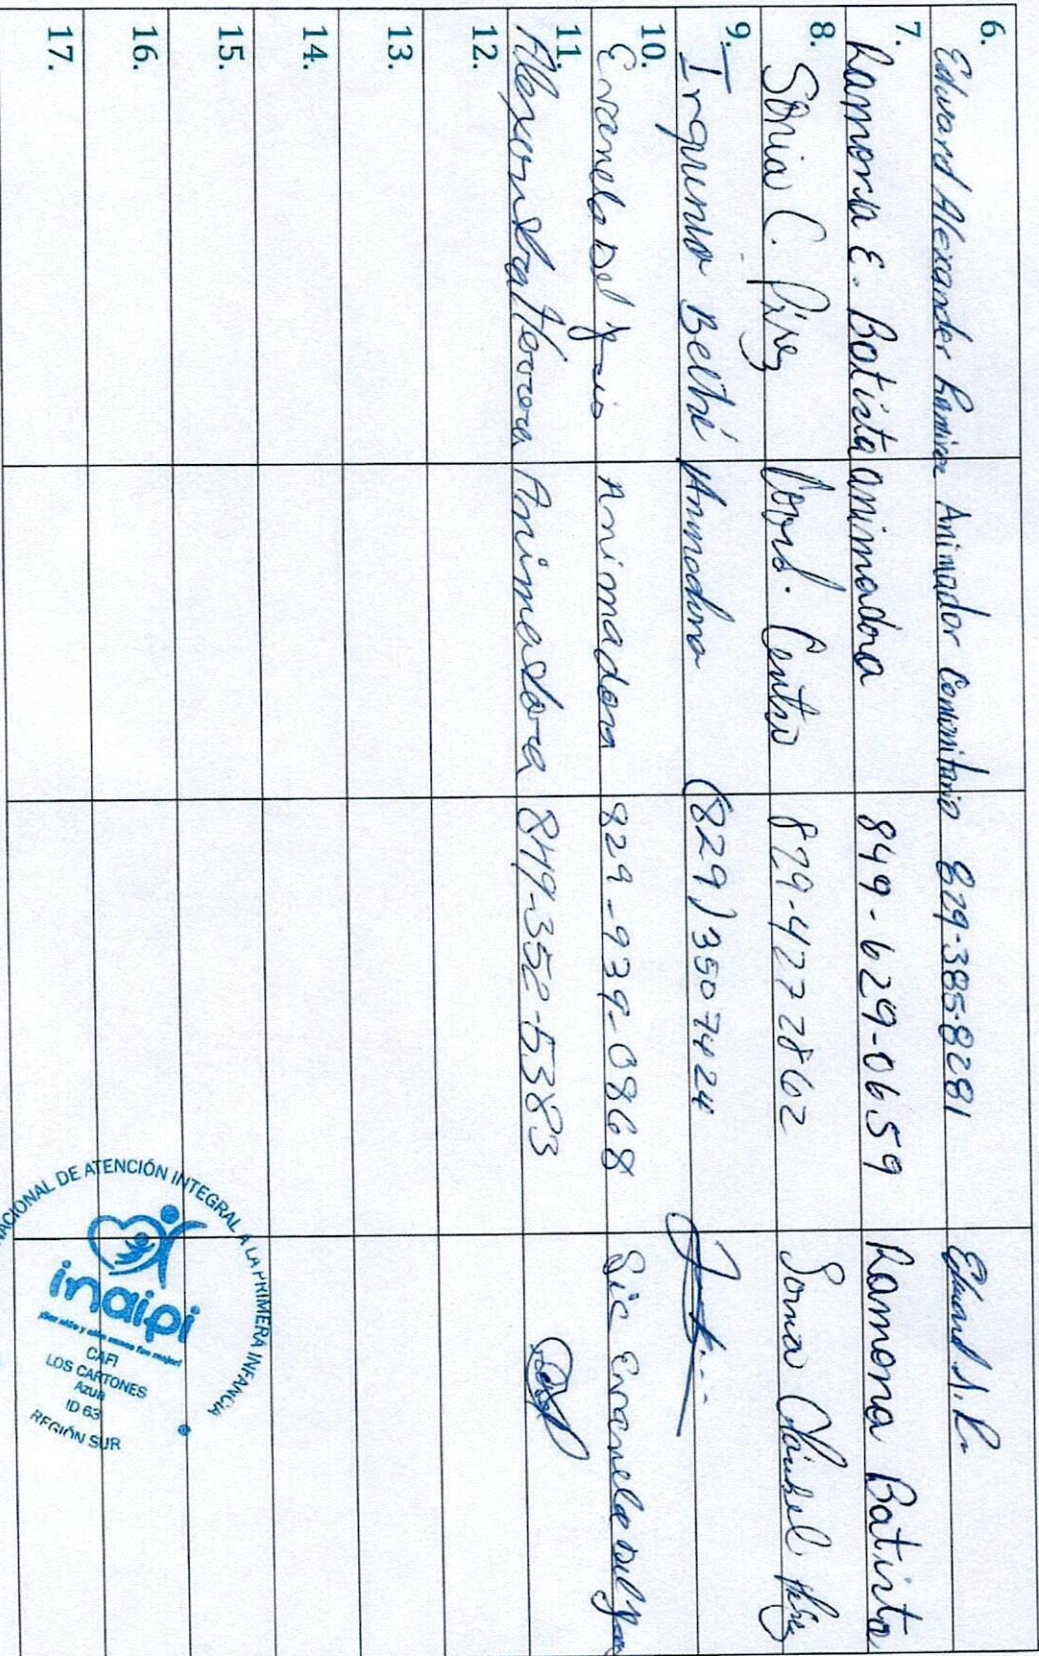 6. Edward Alexander Ramirez Animador Comunitario 829-385-8281 Edward A. R
7. Ramona E. Batista animadora 849-629-0659 Ramona Batista
8. Sonia C. Pérez Coord. Centro 829-477 2862 Sonia Pérez
9. Irquenia Beltré Animadora (829) 350 7424
10. Animadora 829-939-0868
11. Alexandra Herrera Animadora 849-352-5383
12.
13.
14.
15.
16.
17.
NACIONAL DE ATENCIÓN INTEGRAL A LA PRIMERA INFANCIA
inaipi
CAFI
LOS CARTONES
Azua
ID 63
REGIÓN SUR